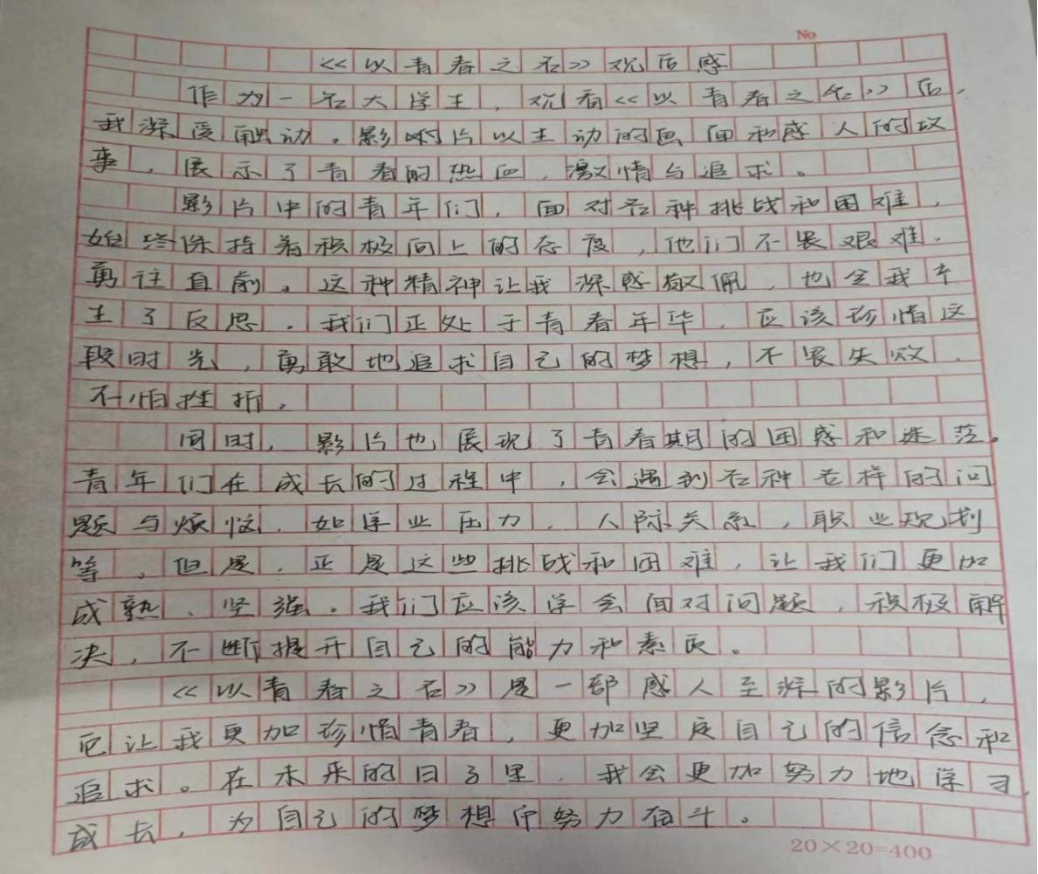 No
《以青春之名》观后感
作为一名大学生，观看《以青春之名》后，
我深受触动。影片以生动的画面和感人的故
事，展示了青春的热血，激情与追求。
影片中的青年们，面对各种挑战和困难，
始终保持着积极向上的态度，他们不畏艰难，
勇往直前。这种精神让我深感敬佩，也令我产
生了反思。我们正处于青春年华，应该珍惜这
段时光，勇敢地追求自己的梦想，不畏失败，
不怕挫折。
同时，影片也展现了青春期的困惑和迷茫。
青年们在成长的过程中，会遇到各种各样的问
题与烦恼，如学业压力，人际关系，职业规划
等，但是，正是这些挑战和困难，让我们更加
成熟、坚强。我们应该学会面对问题，积极解
决，不断提升自己的能力和素质。
《以青春之名》是一部感人至深的影片，
它让我更加珍惜青春，更加坚定自己的信念和
追求。在未来的日子里，我会更加努力地学习，
成长，为自己的梦想而努力奋斗。
20×20=400